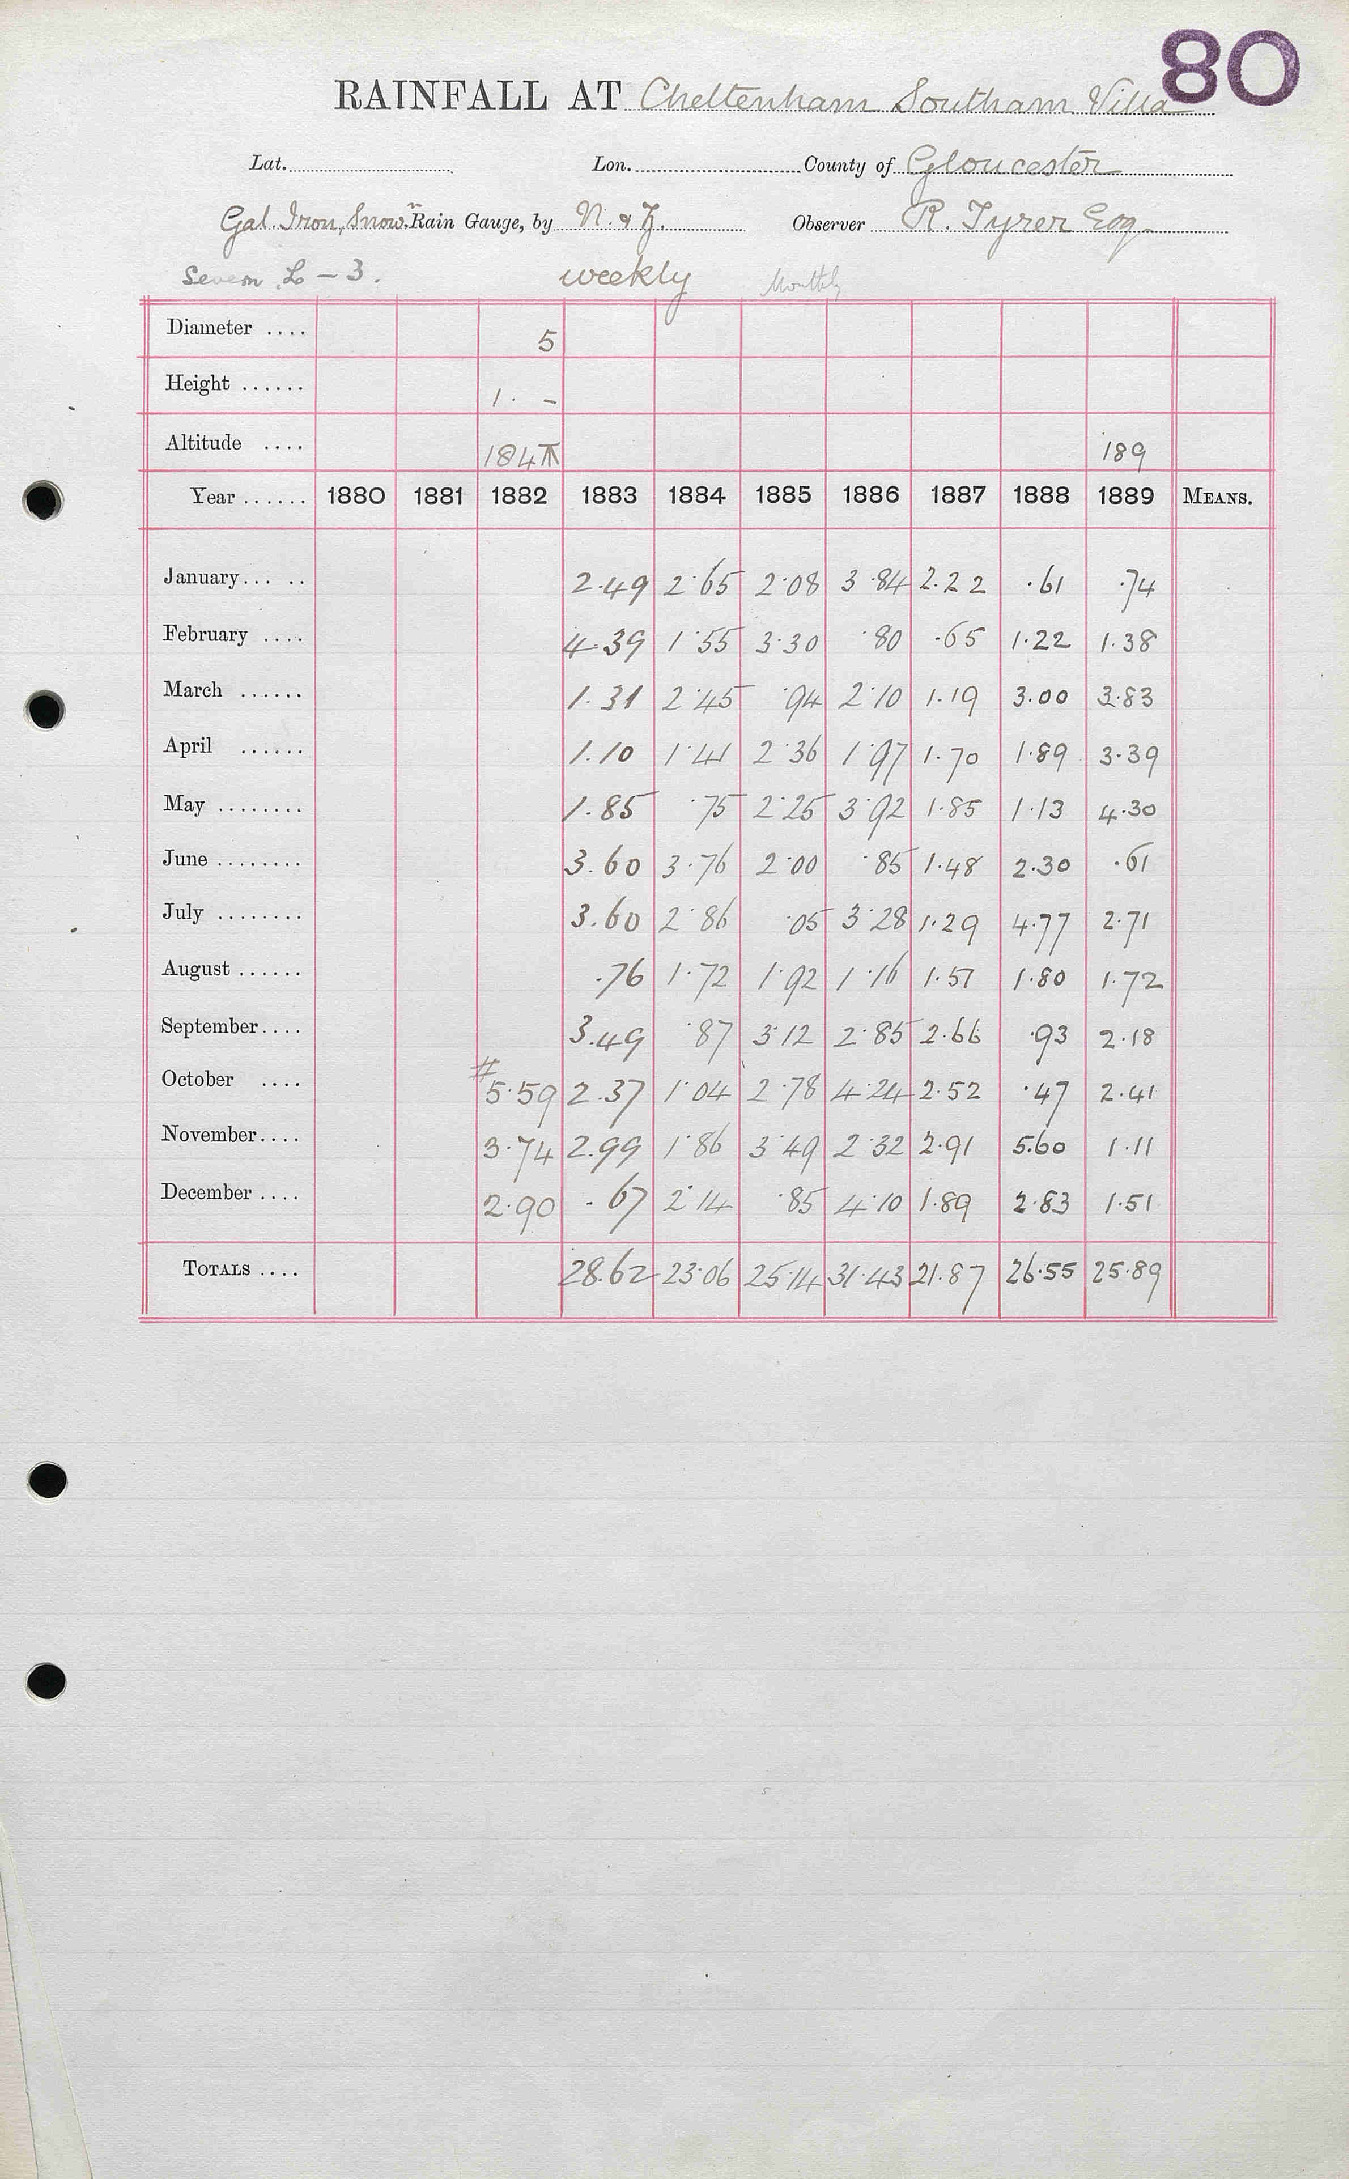 80
RAINFALL AT Cheltenham Southam Villa
Lat. Lon. County of Gloucester
Gal. Iron, Snow Rain Gauge, by N. & Z. Observer R. Tyrer Esq
Severn L - 3. weekly Monthly
Diameter .... 5
Height ...... 1. -
Altitude .... 184 189
Year ...... 1880 1881 1882 1883 1884 1885 1886 1887 1888 1889 MEANS.
January... .. 2.49 2.65 2.08 3.84 2.22 .61 .74
February .... 4.39 1.55 3.30 .80 .65 1.22 1.38
March ...... 1.31 2.45 .94 2.10 1.19 3.00 3.83
April ...... 1.10 1.41 2.36 1.97 1.70 1.89 3.39
May ........ 1.85 .75 2.25 3.92 1.85 1.13 4.30
June ........ 3.60 3.76 2.00 .85 1.48 2.30 .61
July ........ 3.60 2.86 .05 3.28 1.29 4.77 2.71
August ...... .76 1.72 1.92 1.16 1.51 1.80 1.72
September.... 3.49 .87 3.12 2.85 2.66 .93 2.18
October .... # 5.59 2.37 1.04 2.78 4.24 2.52 .47 2.41
November.... 3.74 2.99 1.86 3.49 2.32 2.91 5.60 1.11
December .... 2.90 .67 2.14 .85 4.10 1.89 2.83 1.51
TOTALS .... 28.62 23.06 25.14 31.43 21.87 26.55 25.89